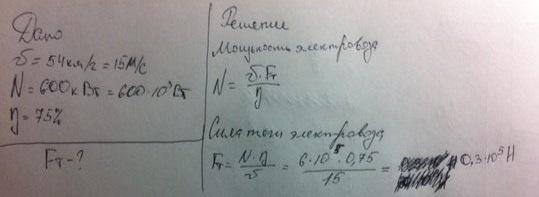 Дано
v = 54 км/ч = 15 м/с
N = 600 кВт = 600·10³ Вт
η = 75%
Fт - ?
Решение
Мощность электровоза
N = v·Fт / η
Сила тяги электровоза
Fт = N·η / v = 6·10⁵·0,75 / 15 = 0,3·10⁵ Н